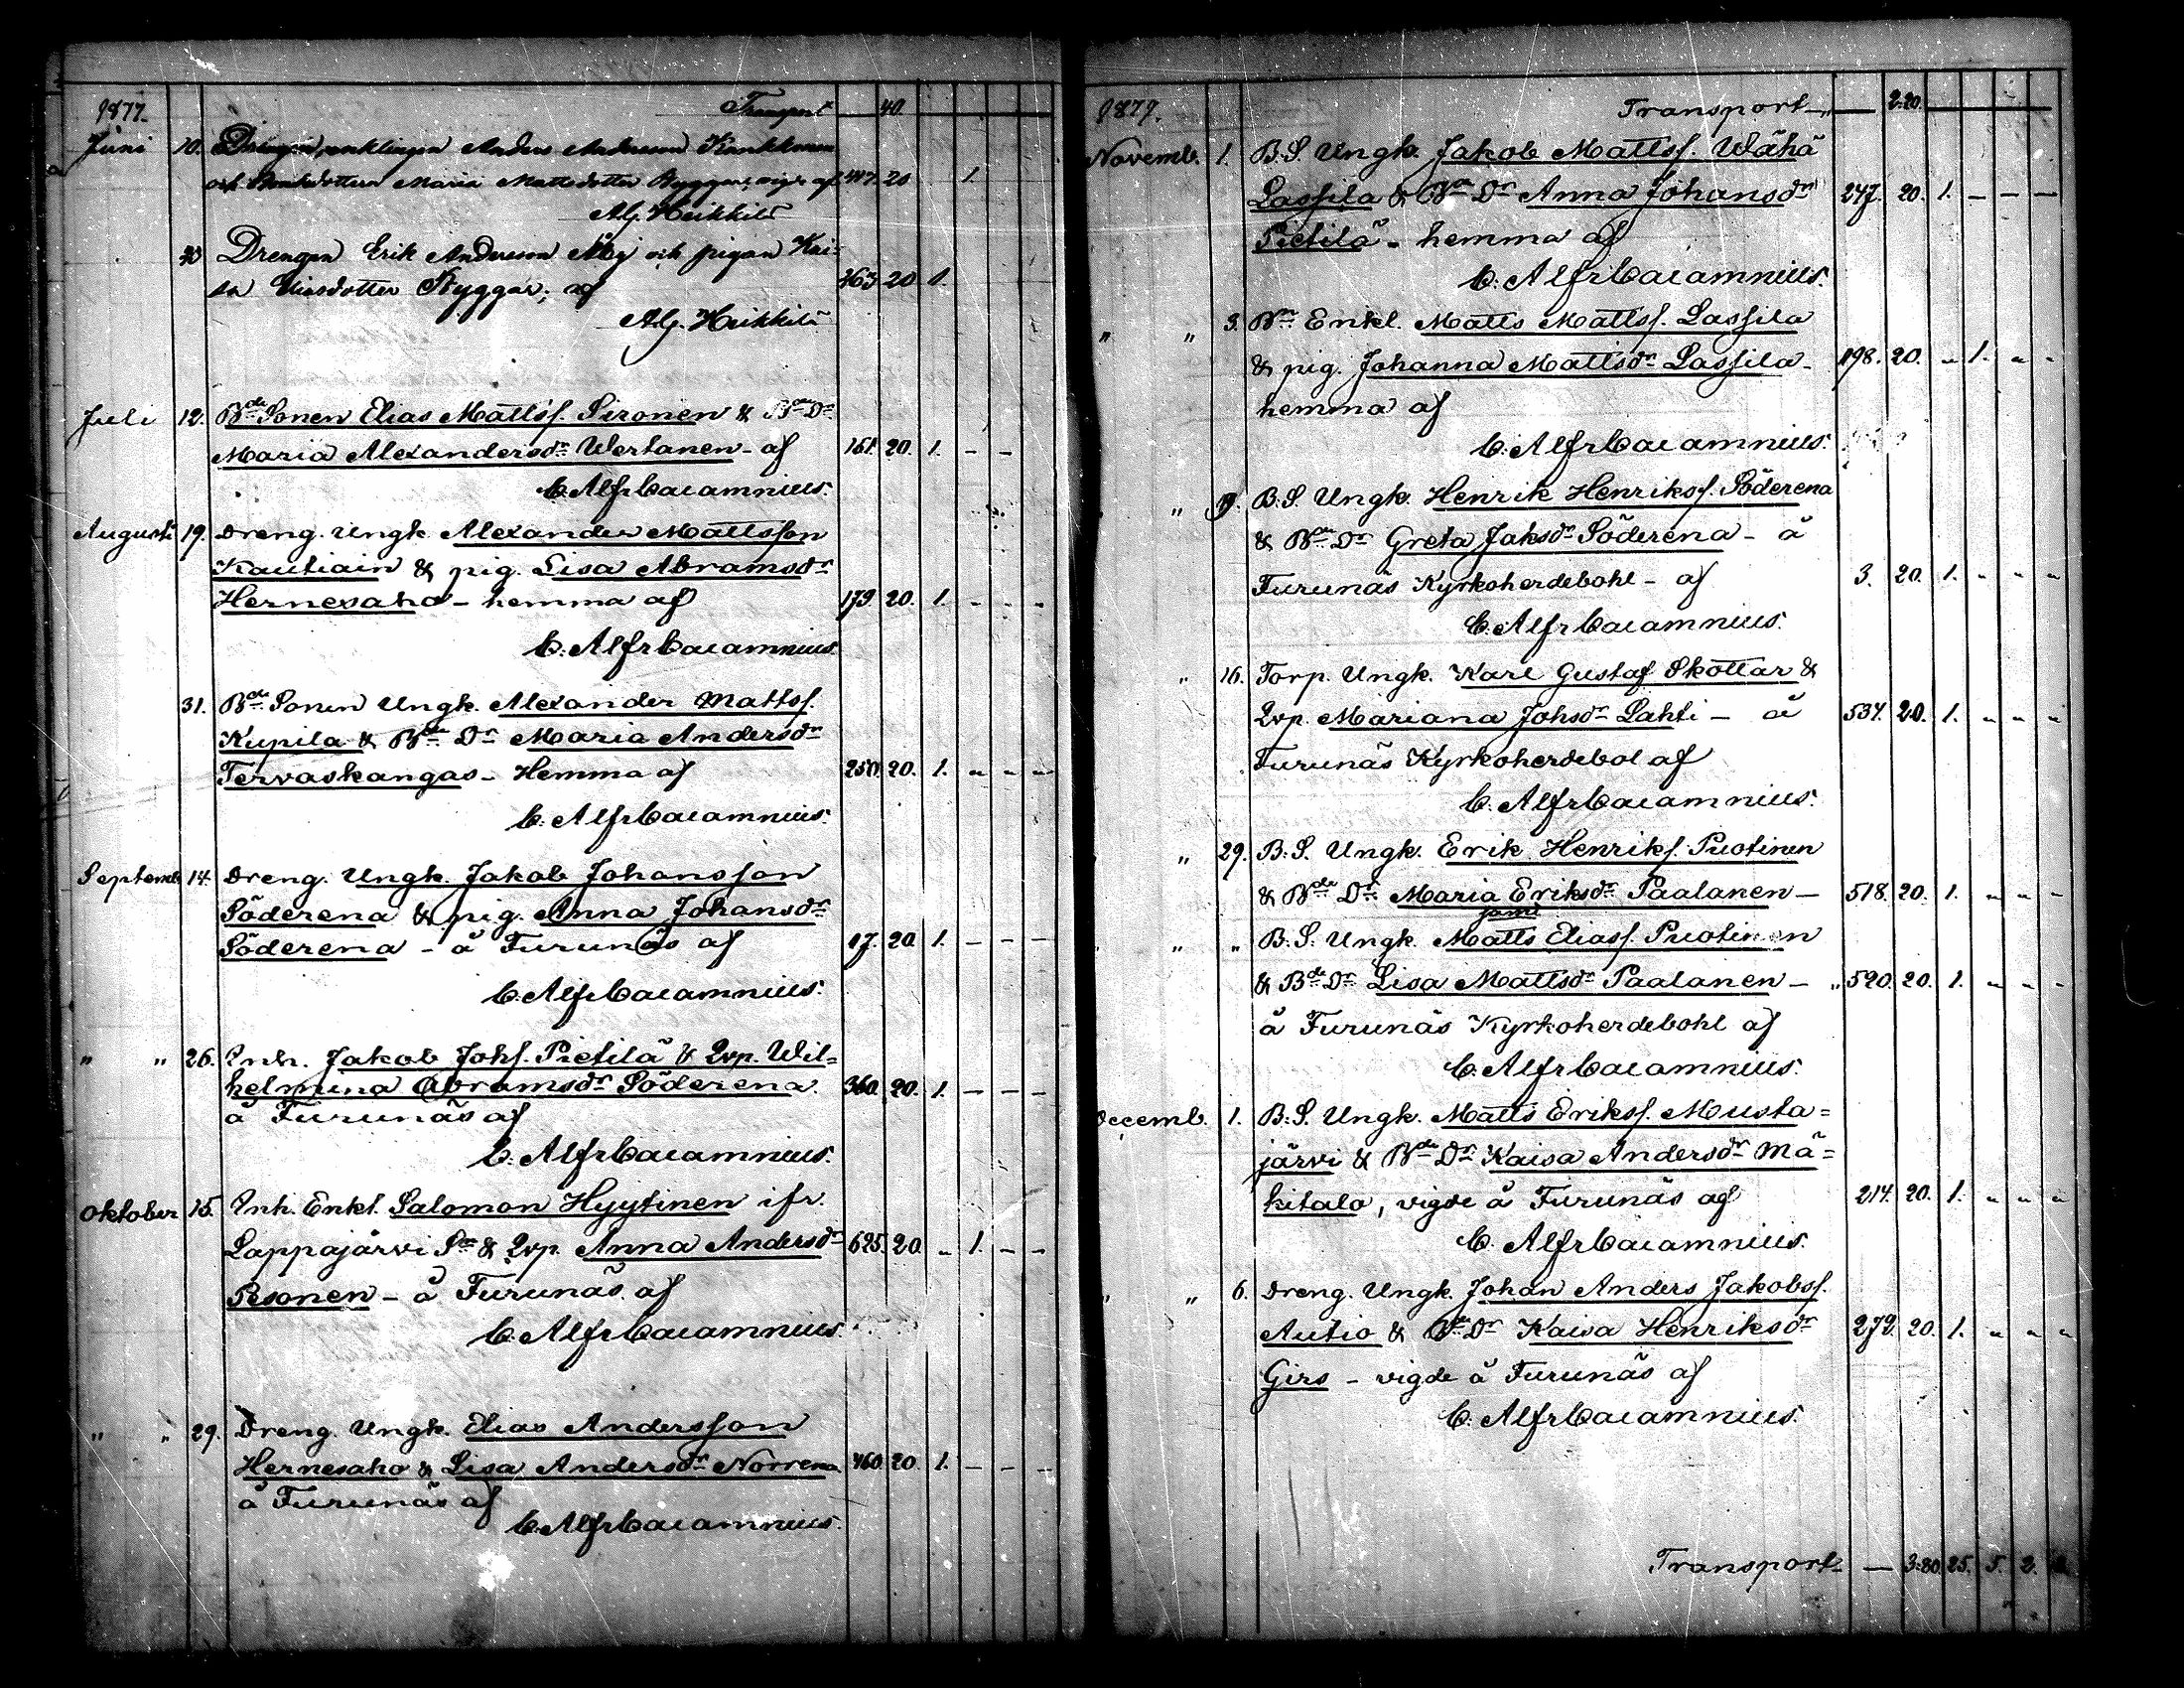 1877. Transport 40.
Juni 10. Drengen, enklingen Anders Andersson Kankkonen
och Bondedottern Maria Mattsdotter Byggar, vigde af 447. 20 1.
A.G. Heikkilä
30 Drengen Erik Andersson Åbg och pigan Kai-
sa Eliasdotter Byggar, af 463 20 1.
A.G. Heikkilä
Juli 12. Bde Sonen Elias Mattsf. Sironen & Bde Dr
Maria Alexandersdr Wertanen - af 161. 20. 1. - -
C. Alfr Cajamnius.
Augusti 19. Dreng. Ungk. Alexander Mattsson
Kautiain & pig. Lisa Abramsdr
Hernesaho - hemma af 179. 20. 1. - - -
C. Alfr Cajamnius.
31. Bde Sonen Ungk. Alexander Mattsf.
Kupila & Bde Dr Maria Andersdr
Tervaskangas - Hemma af 250. 20. 1. - - -
C. Alfr Cajamnius.
Septemb. 14. Dreng. Ungk. Jakob Johansson
Söderena & pig. Anna Johansdr
Söderena - å Furunäs af 17. 20. 1. - - -
C. Alfr Cajamnius.
" " 26. Inh. Jakob Johsf. Pietilä & Qvp. Wil=
helmina Abramsdr Söderena 360. 20. 1. - - -
å Furunäs af
C. Alfr Cajamnius.
Oktober 15. Inh. Enkl. Salomon Hyytinen ifr.
Lappajärvi Sn & Qvp. Anna Andersdr 625. 20. - 1. - -
Pesonen - å Furunäs af
C. Alfr Cajamnius.
" " 29. Dreng. Ungk. Elias Andersson
Hernesaho & Lisa Andersdr Norrena 460. 20. 1. - - -
å Furunäs af
C. Alfr Cajamnius.
1877. Transport - 2:20.
Novemb. 1. B.S. Ungk. Jakob Mattsf. Wähä
Lassila & Bde Dr Anna Johansdr 247. 20. 1. - - -
Pietilä - hemma af
C. Alfr Cajamnius.
" " 3. Bde Enkl. Matts Mattsf. Lassila
& pig. Johanna Mattsdr Lassila - 198. 20. - 1. - -
hemma af
C. Alfr Cajamnius.
" 9. B.S. Ungk. Henrik Henriksf. Söderena
& Bde Dr Greta Jaksdr Söderena - å
Furunäs Kyrkoherdebohl - af 3. 20. 1. - - -
C. Alfr Cajamnius.
" 16. Torp. Ungk. Karl Gustaf Skottar &
Qvp. Mariana Johsdr Lahti - å 534. 20. 1. - - -
Furunäs Kyrkoherdebol af
C. Alfr Cajamnius.
" 29. B.S. Ungk. Erik Henriksf. Puotinen
& Bde Dr Maria Eriksdr Paalanen - 518. 20. 1. - - -
jamt
" " B.S. Ungk. Matts Eliasf. Puotinen
& Bde Dr Lisa Mattsdr Paalanen - " 590. 20. 1. - - -
å Furunäs Kyrkoherdebohl af
C. Alfr Cajamnius.
Decemb. 1. B.S. Ungk. Matts Eriksf. Musta=
järvi & Bde Dr Kaisa Andersdr Mä=
kitalo, vigde å Furunäs af 214. 20. 1. - - -
C. Alfr Cajamnius.
" " 6. Dreng. Ungk. Johan Anders Jakobsf.
Autio & Bde Dr Kaisa Henriksdr 279. 20. 1. - - -
Girs - vigde å Furunäs af
C. Alfr Cajamnius.
Transport - 3:80. 25. 5. 2.